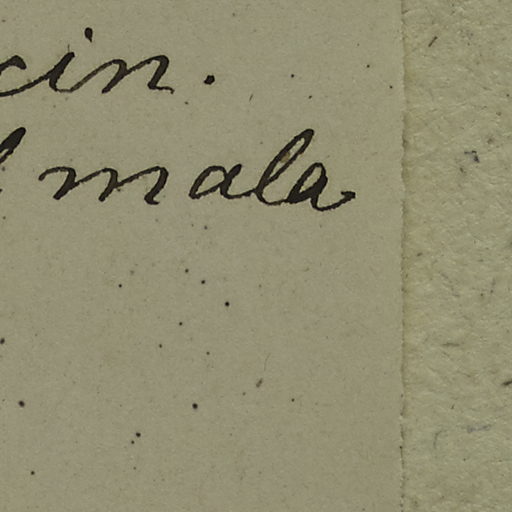 cin.
mala